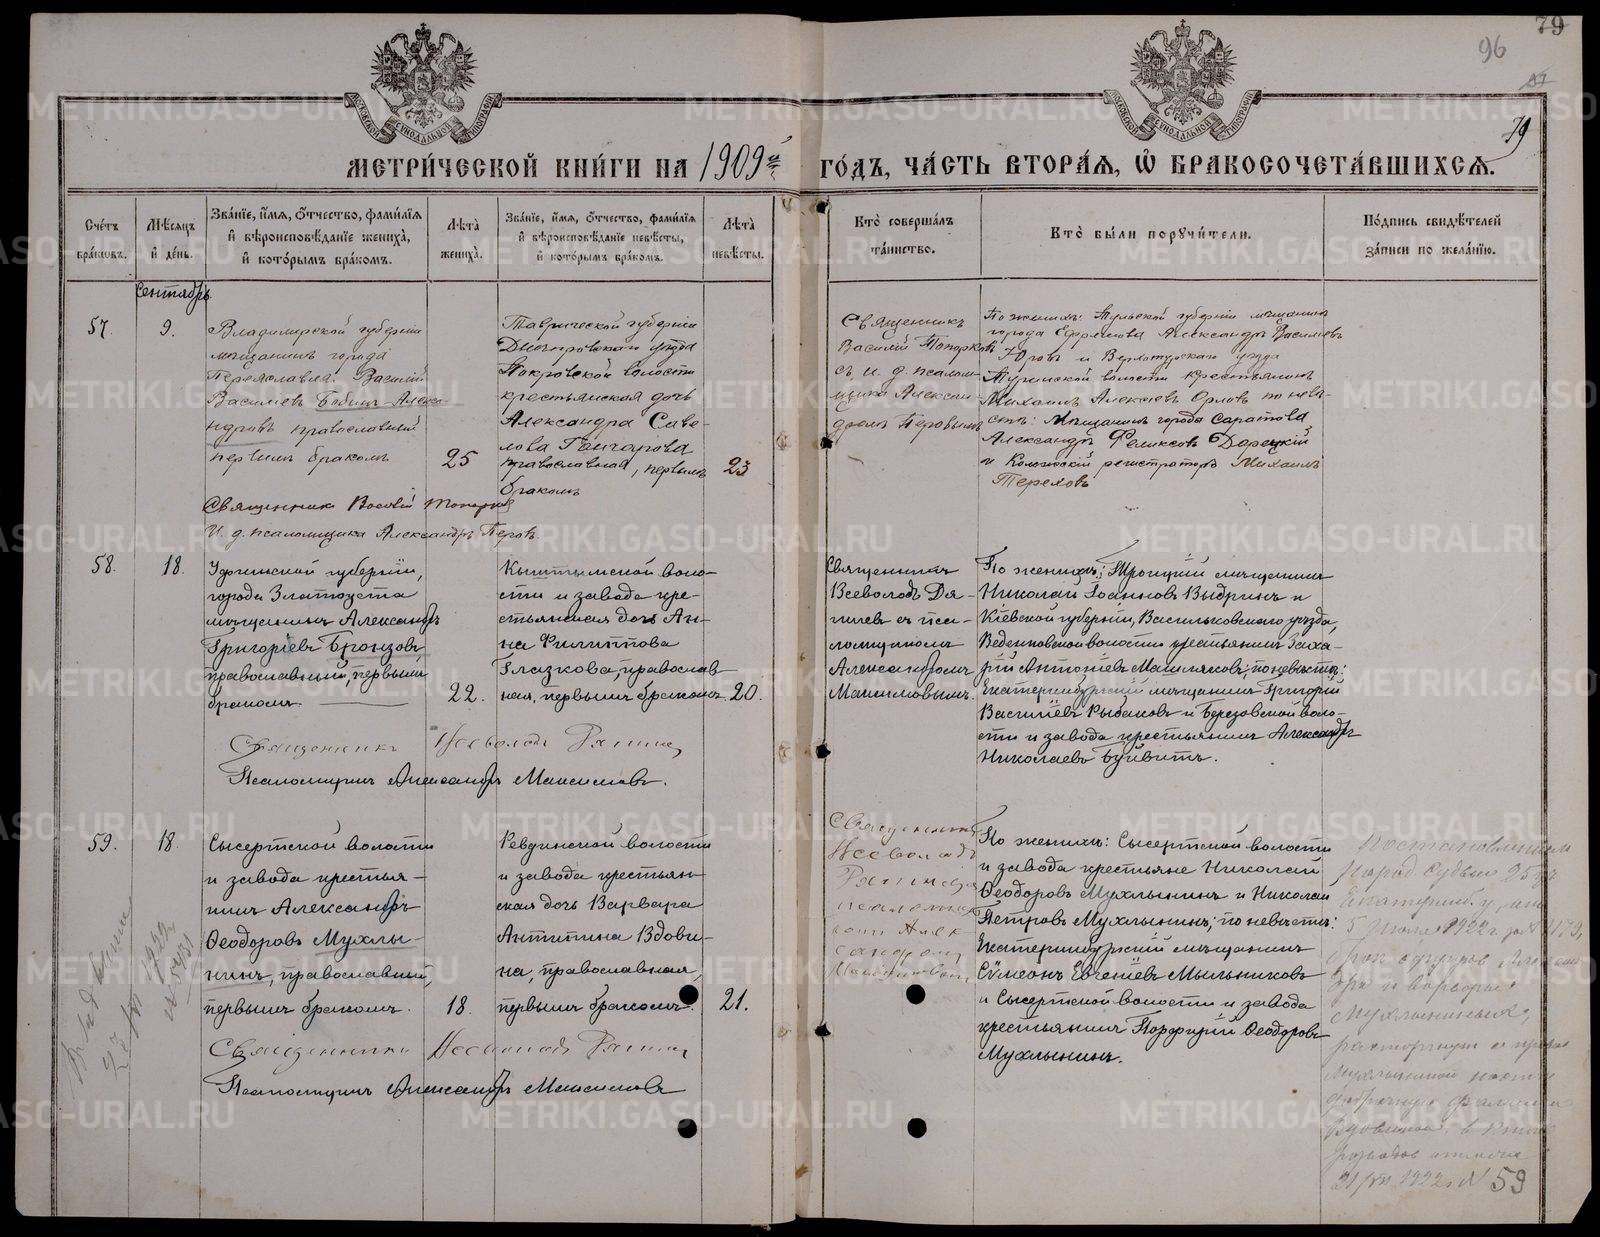 79
96
79
МОСКОВСКОЙ СУНОДАЛЬНОЙ ТИПОГРАФІИ
МОСКОВСКОЙ СУНОДАЛЬНОЙ ТИПОГРАФІИ
МЕТРИ́ЧЕСКОЙ КНИ́ГИ НА 1909й ГО́ДЪ, ЧА́СТЬ ВТОРА́Я, Ѽ БРАКОСОЧЕТА́ВШИХСЯ.
Сче́тъ бра́ковъ.
Мѣ́сяцъ и҆ де́нь.
Зва́нїе, и҆́мя, ѻ҆́тчество, фами́лїя и҆ вѣроисповѣ́данїе жениха̀, и҆ кото́рымъ бра́комъ.
Лѣта̀ жениха̀.
Зва́нїе, и҆́мя, ѻ҆́тчество, фами́лїя и҆ вѣроисповѣ́данїе невѣ́сты, и҆ кото́рымъ бра́комъ.
Лѣта̀ невѣ́сты.
Кто̀ соверша́лъ та́инство.
Кто̀ бы́ли порꙋчи́тели.
По́дпись свидѣ́телей за́писи по жела́нїю.
Сентябрь
57.
9.
Владимирской губерніи
мѣщанинъ города
Переяславля Василій
Васильевъ Бабинъ-Алекса-
ндровъ православный
первымъ бракомъ
25
Таврической губерніи
Днепровскаго уѣзда
Покровской волости
крестьянская дочь
Александра Саве-
лова Гончарова
православная, первымъ
бракомъ
23
Священникъ
Василій Топорковъ
съ и. д. псалом-
щика Алексан-
дромъ Перовымъ
По женихѣ: Тульской губерніи мѣщанинъ
города Ефремова Александръ Васильевъ
Юровъ и Верхотурскаго уѣзда
Туринской волости крестьянинъ
Михаилъ Алексѣевъ Орловъ по невѣ-
стѣ: мѣщанинъ города Саратова
Александръ Феликсовъ Дорецкій
и Колежскій регистраторъ Михаилъ
Тереховъ
Священникъ Василій Топорковъ
И. д. псаломщика Александръ Перовъ
58.
18.
Уфимской губерніи,
города Златоуста
мѣщанинъ Александръ
Григоріевъ Бронзовъ,
православный, первымъ
бракомъ.
22.
Кыштымской воло-
сти и завода кре-
стьянская дочь Ан-
на Филиппова
Глазкова, православ-
ная, первымъ бракомъ.
20.
Священникъ
Всеволодъ Ля-
пинъ съ пса-
ломщикомъ
Александромъ
Максимовымъ.
По женихѣ: Троицкій мѣщанинъ
Николай Іоанновъ Выдринъ и
Кіевской губерніи, Васильковскаго уѣзда,
волости крестьянинъ Заха-
рій Антоніевъ; по невѣстѣ:
Екатеринбургскій мѣщанинъ Григорій
Василіевъ Рыбаковъ и Березовской воло-
сти и завода крестьянинъ Александръ
Николаевъ Буйвитъ.
Священникъ Всеволодъ
Псаломщикъ Александръ Максимовъ.
59.
18.
Сысертской волости
и завода крестья-
нинъ Александръ
Ѳеодоровъ Мухлы-
нинъ, православный,
первымъ бракомъ.
18.
Ревдинской волости
и завода крестьян-
ская дочь Варвара
Антипина Вдови-
на, православная,
первымъ бракомъ.
21.
Священникъ
Всеволодъ
По женихѣ: Сысертской волости
и завода крестьяне Николай
Ѳеодоровъ Мухлынинъ и Николай
Петровъ Мухлынинъ; по невѣстѣ:
Екатеринбургскій мѣщанинъ
Сѵмеонъ Евгеніевъ Мыльниковъ
и Сысертской волости и завода
крестьянинъ Порфирій Ѳеодоровъ
Мухлынинъ.
Постановлением
Народ. Судьи
5 Июля 1922 г.
брак супругов
и Варвары
Мухлыниных,
расторгнут
Мухлыниной
добрачную фамилия
1922 г. N 59
Священникъ Всеволодъ
Псаломщикъ Александръ Максимовъ
METRIKI.GASO-URAL.RU